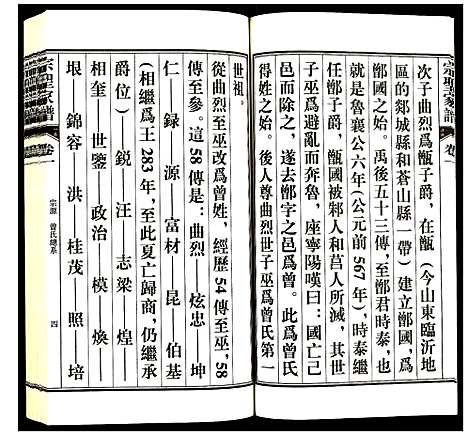 宗聖家譜 卷一
次子曲烈爲甑子爵，在甑（今山東臨沂地
區的郯城縣和蒼山縣一帶）建立鄫國，就
鄫國之始。禹後五十三傳，至鄫君時泰，也
是魯襄公六年（公元前567年），時泰繼
任鄫子爵，甑國被邾人和莒人所滅，其世
子巫爲避亂而奔魯，座寧陽嘆曰：國亡己
邑而除之，遂去鄫字之邑爲曾。此爲曾氏
得姓之始。後人尊曲烈世子巫爲曾氏第一
世祖。
從曲烈至巫改爲曾姓，經歷54傳至巫，58
傳至參。這58傳是：曲烈——炫忠——坤
仁——録——源——富材——昆——伯基
（相繼爲王283年，至此夏亡歸商，仍繼承
爵位）——鋭——汪——志梁——煌——
相奎——世鑒——政治——模——煥——
垠——錦容——洪——桂茂——照——培
宗源 曾氏總系
四
宗聖家譜 卷一